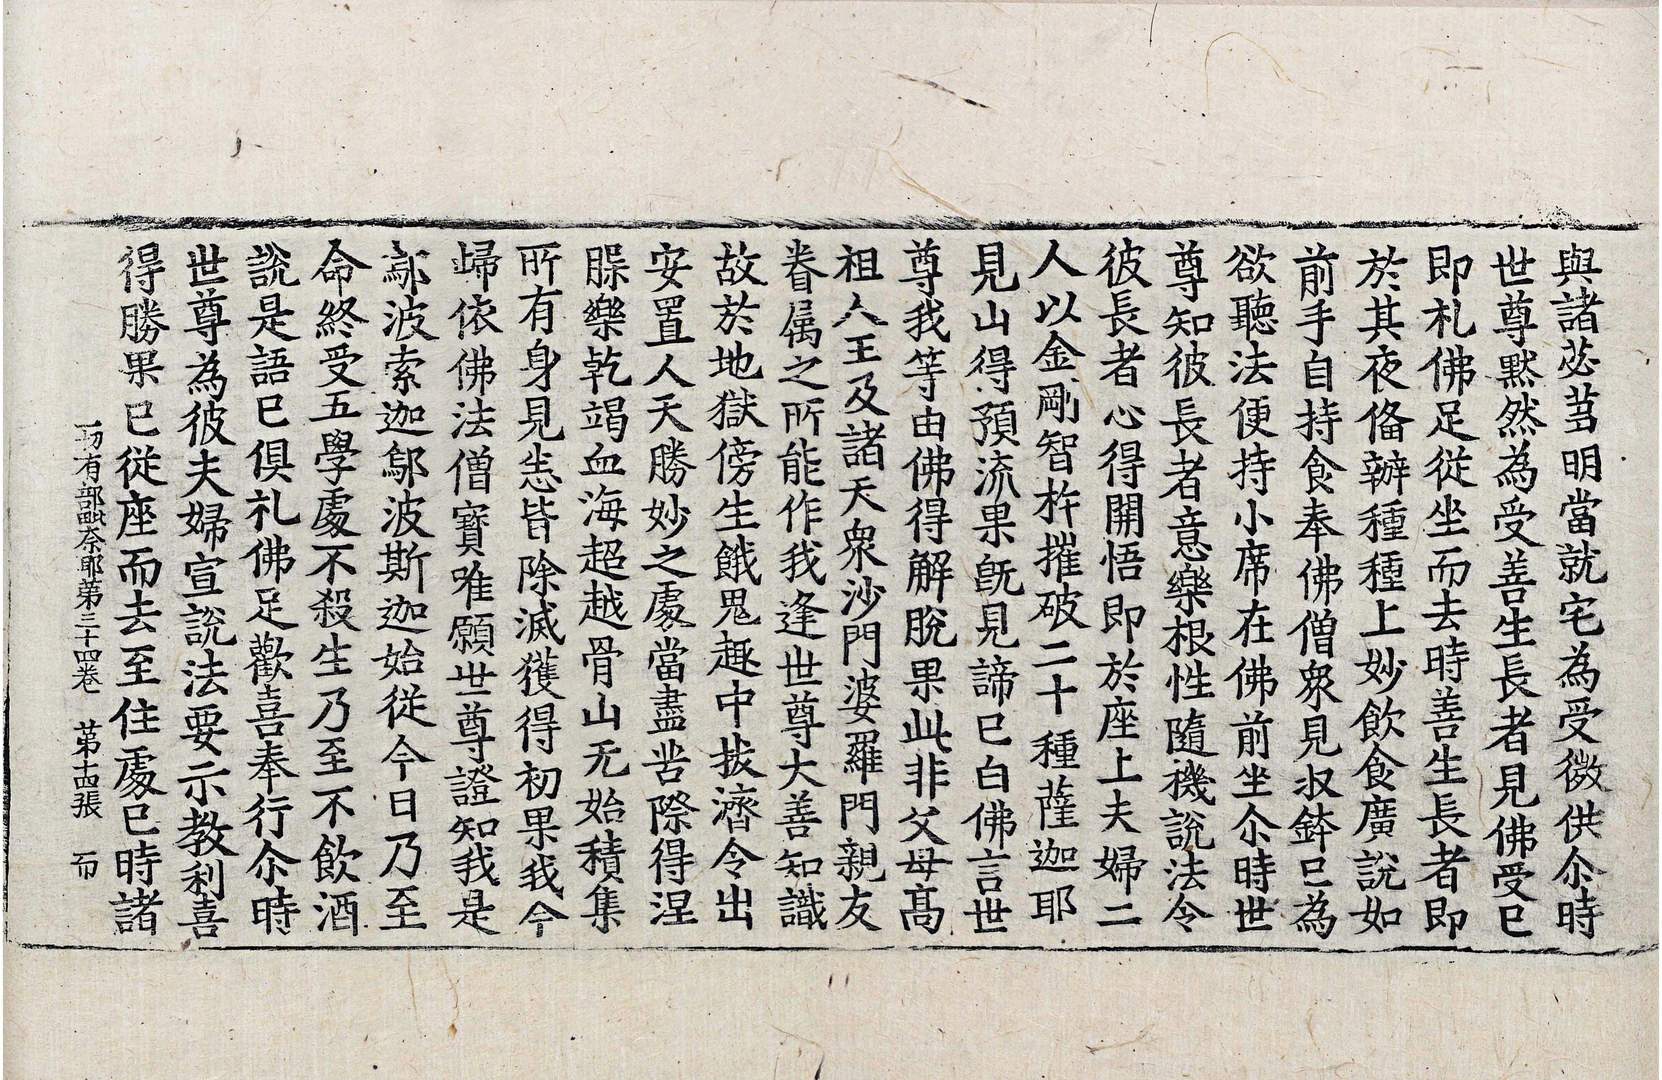 與諸苾芻明當就宅為受微供尒時
世尊默然為受善生長者見佛受已
即礼佛足從坐而去時善生長者即
於其夜俻辦種種上妙飲食廣說如
前手自持食奉佛僧衆見収鉢已為
欲聽法便持小席在佛前坐尒時世
尊知彼長者意樂根性隨機說法令
彼長者心得開悟即於座上夫婦二
人以金剛智杵摧破二十種薩迦耶
見山得預流果旣見諦已白佛言世
尊我等由佛得解脫果此非父母髙
祖人王及諸天衆沙門婆羅門親友
眷属之所能作我逢世尊大善知識
故於地獄傍生餓鬼趣中拔濟令出
安置人天勝妙之處當盡苦際得涅
縣樂乾竭血海超越骨山无始積集
所有身見悉皆除滅獲得初果我今
歸依佛法僧寶唯願世尊證知我是
鄔波索迦鄔波斯迦始從今日乃至
命終受五學處不殺生乃至不飲酒
說是語已俱礼佛足歡喜奉行尒時
世尊為彼夫婦宣說法要示教利喜
得勝果已從座而去至住處已時諸
一切有部毗奈耶第三十四卷 第十四張 而